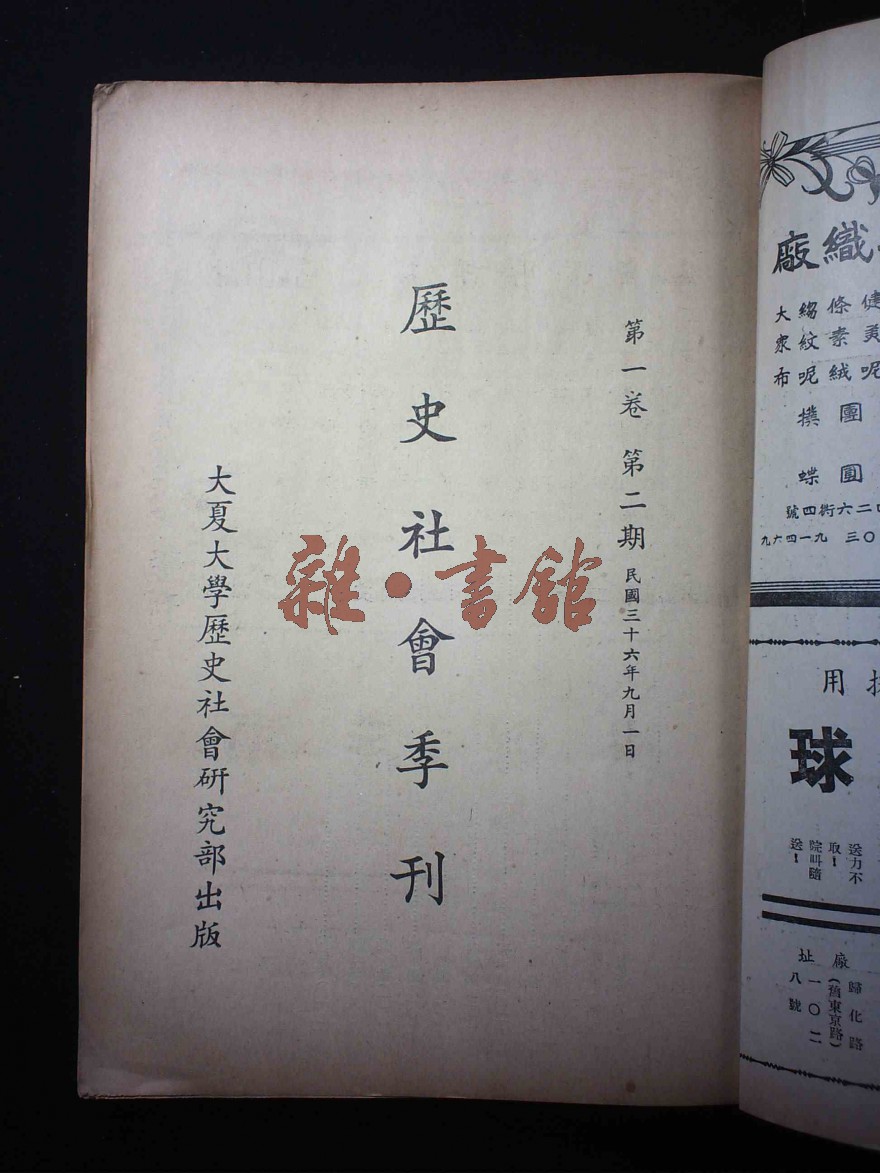 第一卷 第二期 民國三十六年九月一日
歷史社會季刊
大夏大學歷史社會研究部出版
雜·書舘
織廠
條素絨
縐紋呢
大衆布
團圓
撲蝶
二六衖四號
〇三 九一四六九
用
球
送力不
取！
院叫隨
送！
廠址
歸化路
(舊東京路)
一〇二
八號